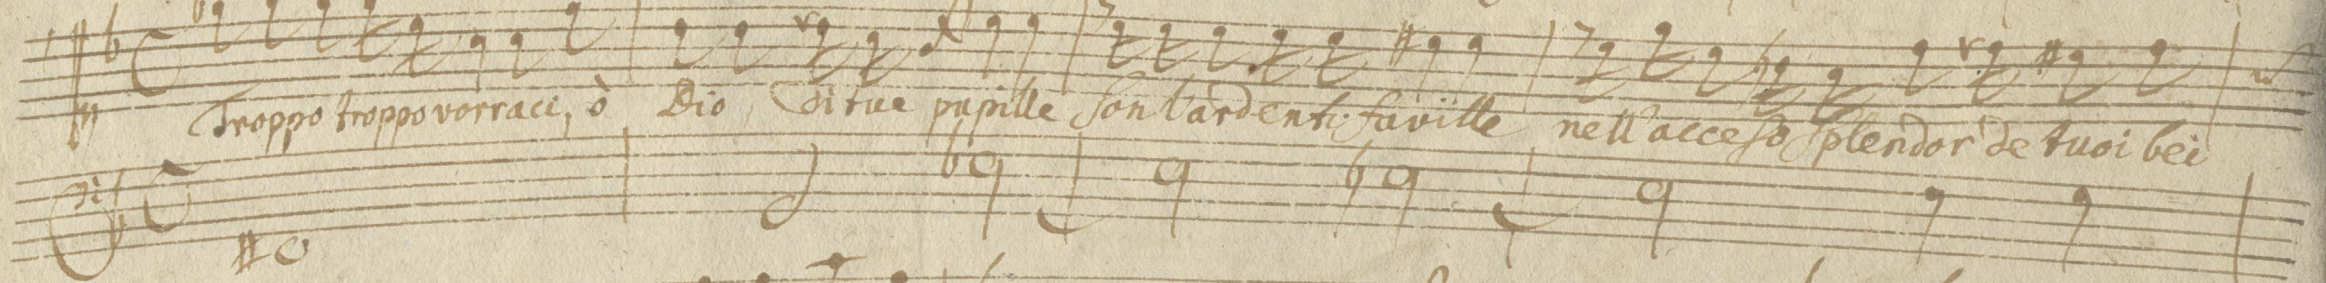 Troppo troppo vorraci, ò Dio, di tue pupille son l'ardenti faville nell'acceso splendor de tuoi bei